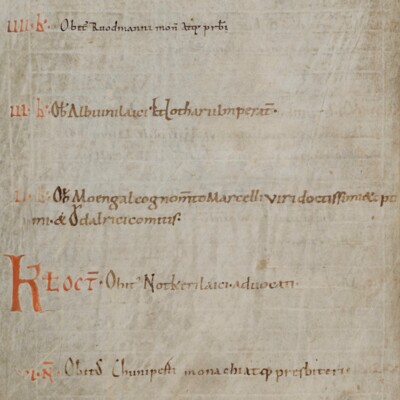 IIII. k̄. Obit' Ruodmanni mon̄ atq; prb̄i
III. k̄. Ob' Albuuini laici. & Lotharii imperat̄.
II. k̄. Ob' Moengal cognom̄to Marcelli viri doctissimi & opti
mi. & Ǒdalrici comitis.
Kł. OCT̄. Obit' Notkeri laici advocati.
VI. N̄. Obit' Chunipẽti monachi atq; presbiteri